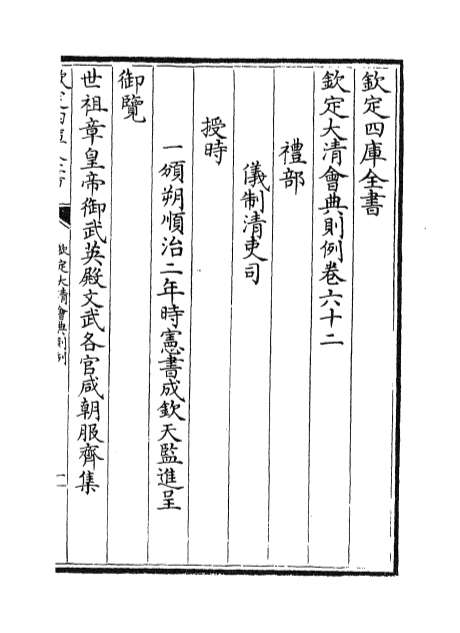 欽定四庫全書
欽定大清會典則例卷六十二
禮部
儀制清吏司
授時
一頒朔順治二年時憲書成欽天監進呈
御覽
世祖章皇帝御武英殿文武各官咸朝服齊集
欽定大清會典則例